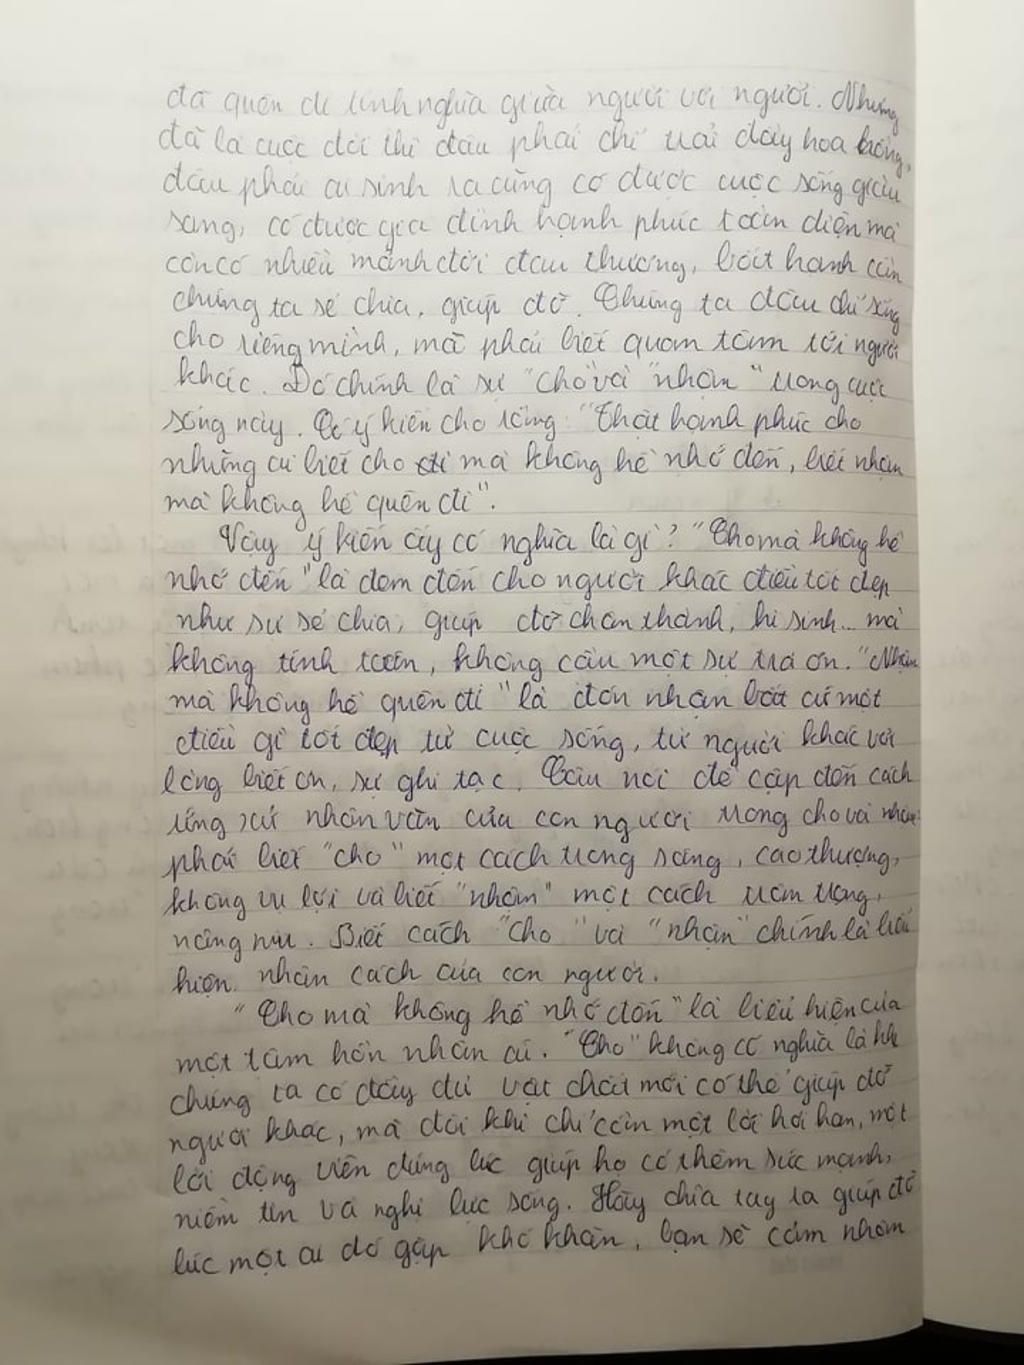 đã quên đi tình nghĩa giữa người với người. Nhưng
đã là cuộc đời thì đâu phải chỉ trải đầy hoa hồng,
đâu phải ai sinh ra cũng có được cuộc sống giàu
sang, có được gia đình hạnh phúc toàn diện mà
còn có nhiều mảnh đời đau thương, bất hạnh cần
chúng ta sẻ chia, giúp đỡ. Chúng ta đâu chỉ sống
cho riêng mình, mà phải biết quan tâm tới người
khác. Đó chính là sự "cho" và "nhận" trong cuộc
sống này. Có ý kiến cho rằng "Thật hạnh phúc cho
những ai biết cho đi mà không hề nhớ đến, biết nhận
mà không hề quên đi".
Vậy ý kiến ấy có nghĩa là gì? "Cho mà không hề
nhớ đến" là đem đến cho người khác điều tốt đẹp
như sự sẻ chia, giúp đỡ chân thành, hi sinh... mà
không tính toán, không cầu một sự trả ơn. "Nhận
mà không hề quên đi" là đón nhận bất cứ một
điều gì tốt đẹp từ cuộc sống, từ người khác với
lòng biết ơn, sự ghi tạc. Câu nói đề cập đến cách
ứng xử nhân văn của con người trong cho và nhận:
phải biết "cho" một cách trong sáng, cao thượng,
không vụ lợi và biết "nhận" một cách trân trọng,
nâng niu. Biết cách "cho" và "nhận" chính là biểu
hiện nhân cách của con người.
"Cho mà không hề nhớ đến" là biểu hiện của
một tâm hồn nhân ái. "Cho" không có nghĩa là khi
chúng ta có đầy đủ vật chất mới có thể giúp đỡ
người khác, mà đôi khi chỉ cần một lời hỏi han, một
lời động viên đúng lúc giúp họ có thêm sức mạnh,
niềm tin và nghị lực sống. Hãy chìa tay ra giúp đỡ
lúc một ai đó gặp khó khăn, bạn sẽ cảm nhận